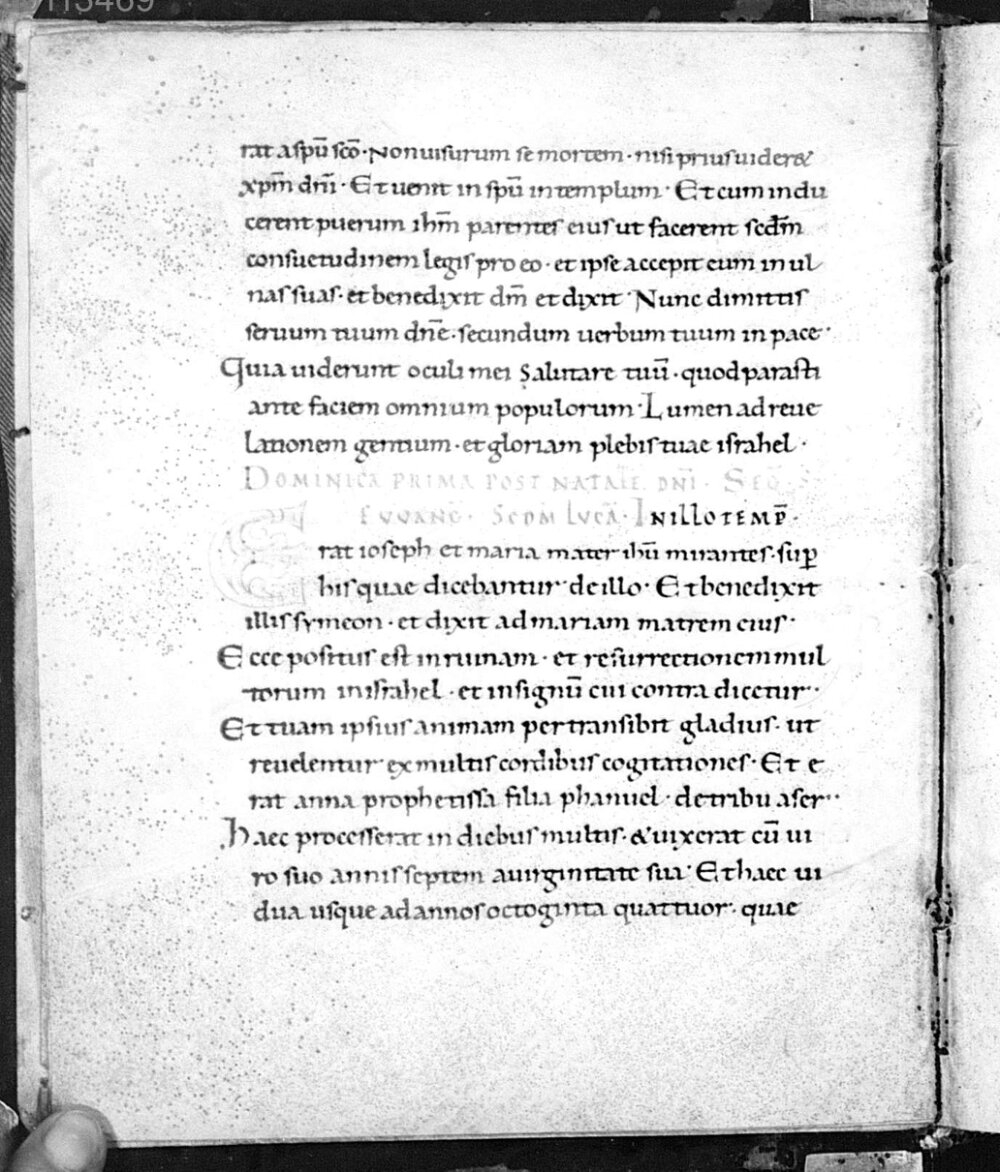 rat a spū scō · Non uisurum se mortem · nisi prius uider&
xpm̄ dn̄i · Et uenit in spū in templum · Et cum indu
cerent puerum ihm̄ parentes eius ut facerent scdm̄
consuetudinem legis pro eo · et ipse accepit eum in ul
nas suas · et benedixit dm̄ et dixit · Nunc dimittis
seruum tuum dn̄e · secundum uerbum tuum in pace ·
Quia uiderunt oculi mei Salutare tuū · quod parasti
ante faciem omnium populorum · Lumen ad reue
lationem gentium · et gloriam plebis tuae israhel ·
DOMINICA PRIMA POST NATALE DN̄I · SEQ̄
EVVANḠ · SCDM̄ LVCĀ · IN ILLO TEMP̄ ·
Erat ioseph et maria mater ihū mirantes · sup̄
his quae dicebantur de illo · Et benedixit
illis symeon · et dixit ad mariam matrem eius ·
Ecce positus est in ruinam · et resurrectionem mul
torum in israhel · et in signū cui contra dicetur ·
Et tuam ipsius animam pertransibit gladius · ut
reuelentur ex multis cordibus cogitationes · Et e
rat anna prophetissa filia phanuel · de tribu aser ·
Haec processerat in diebus multis · & uixerat cū ui
ro suo annis septem a uirginitate sua · Et haec ui
dua usque ad annos octoginta quattuor · quae